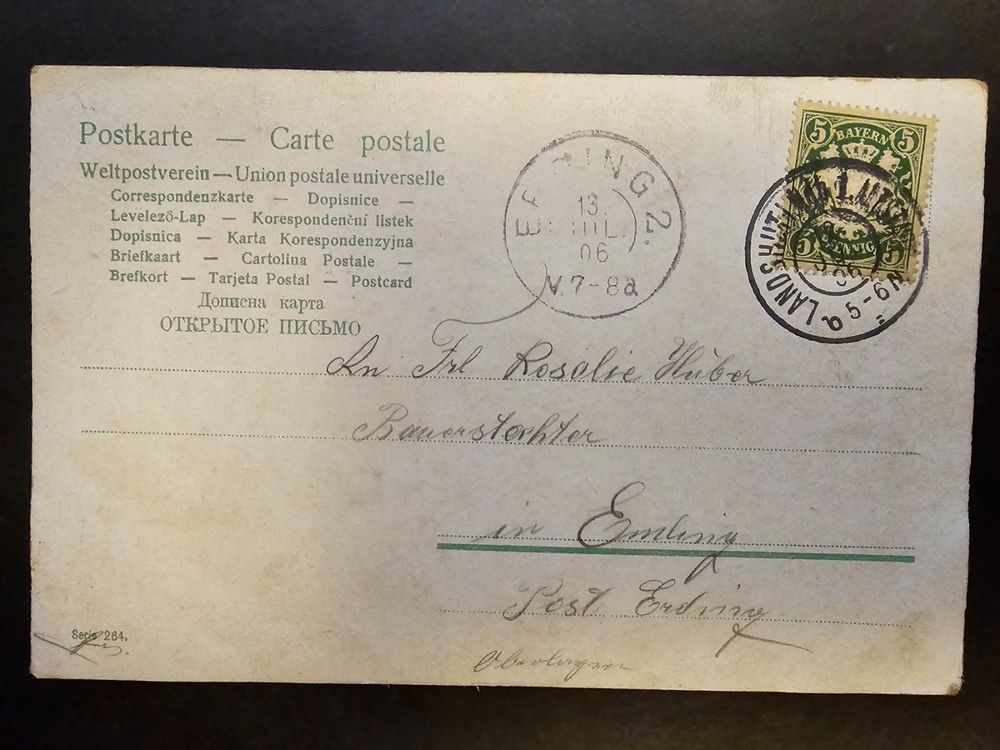 Postkarte — Carte postale
Weltpostverein — Union postale universelle
Correspondenzkarte — Dopisnice —
Levelező-Lap — Korespondenční listek
Dopisnica — Karta Korespondenzyjna
Briefkaart — Cartolina Postale —
Brefkort — Tarjeta Postal — Postcard
Дописна карта
ОТКРЫТОЕ ПИСЬМО
5 BAYERN 5
5 PFENNIG 5
ERDING 2.
13.
JUL.
06
V. 7-8a
LANDSHUT
5-6N
An Frl Rosalie Huber
Bauerstochter
in Emling
Post Erding
Oberbayern
Serie 264.